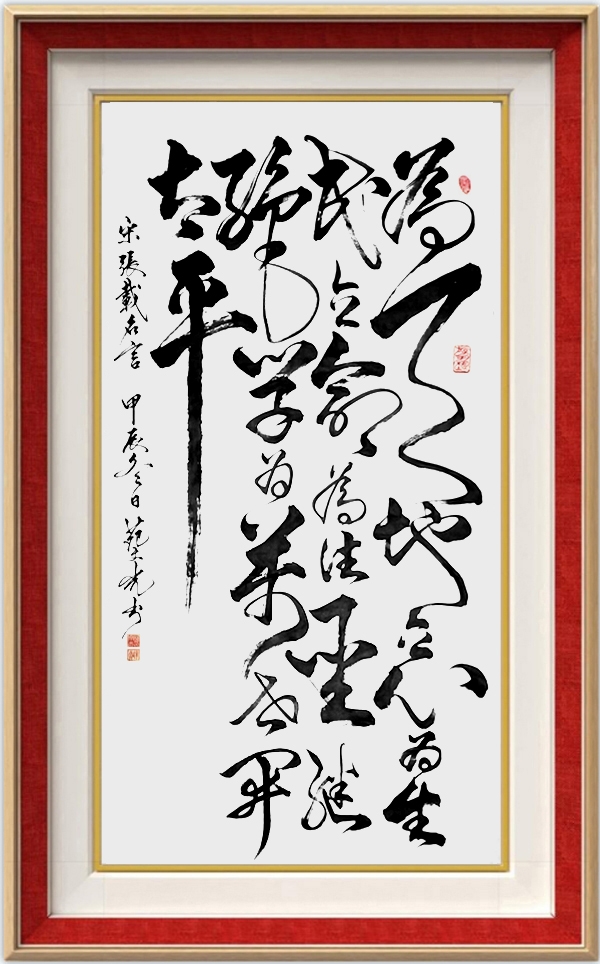 為天地立心为生
民立命為往聖繼
絕学为萬世開
太平
宋張載名言 甲辰冬日 范